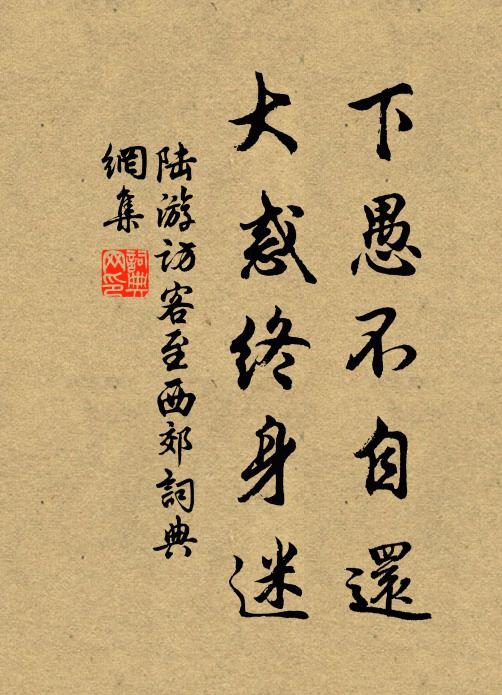 下愚不自還
大惑終身迷
陆游访客至西郊詞典
網集
詞典
网印